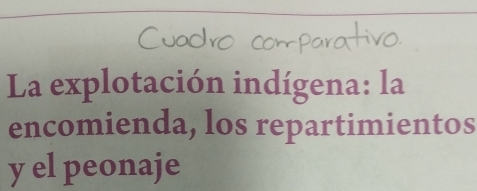 Cuadro comparativo.
La explotación indígena: la
encomienda, los repartimientos
y el peonaje